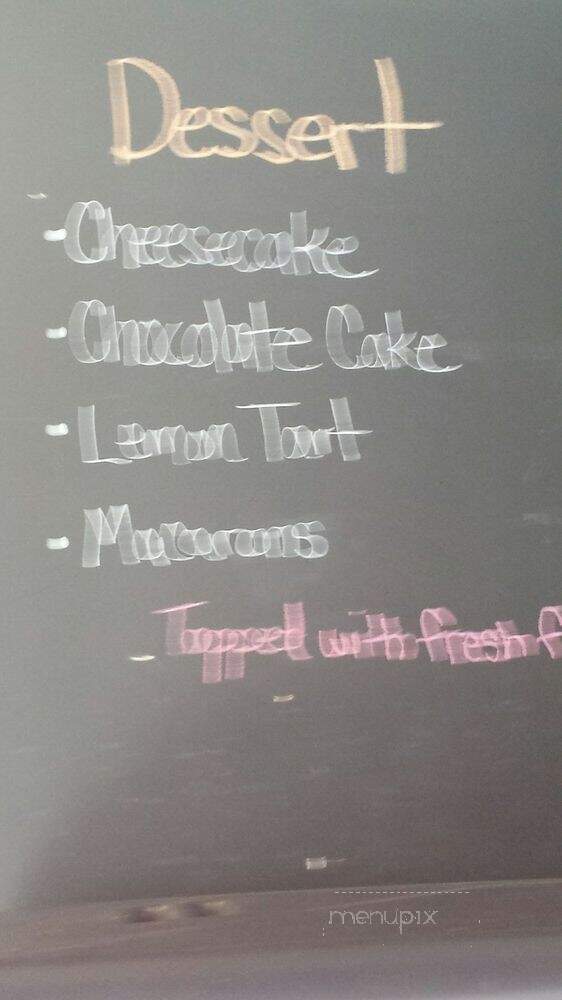 Dessert
- Cheesecake
- Chocolate Cake
- Lemon Tart
- Macarons
Topped with fresh f
menupix